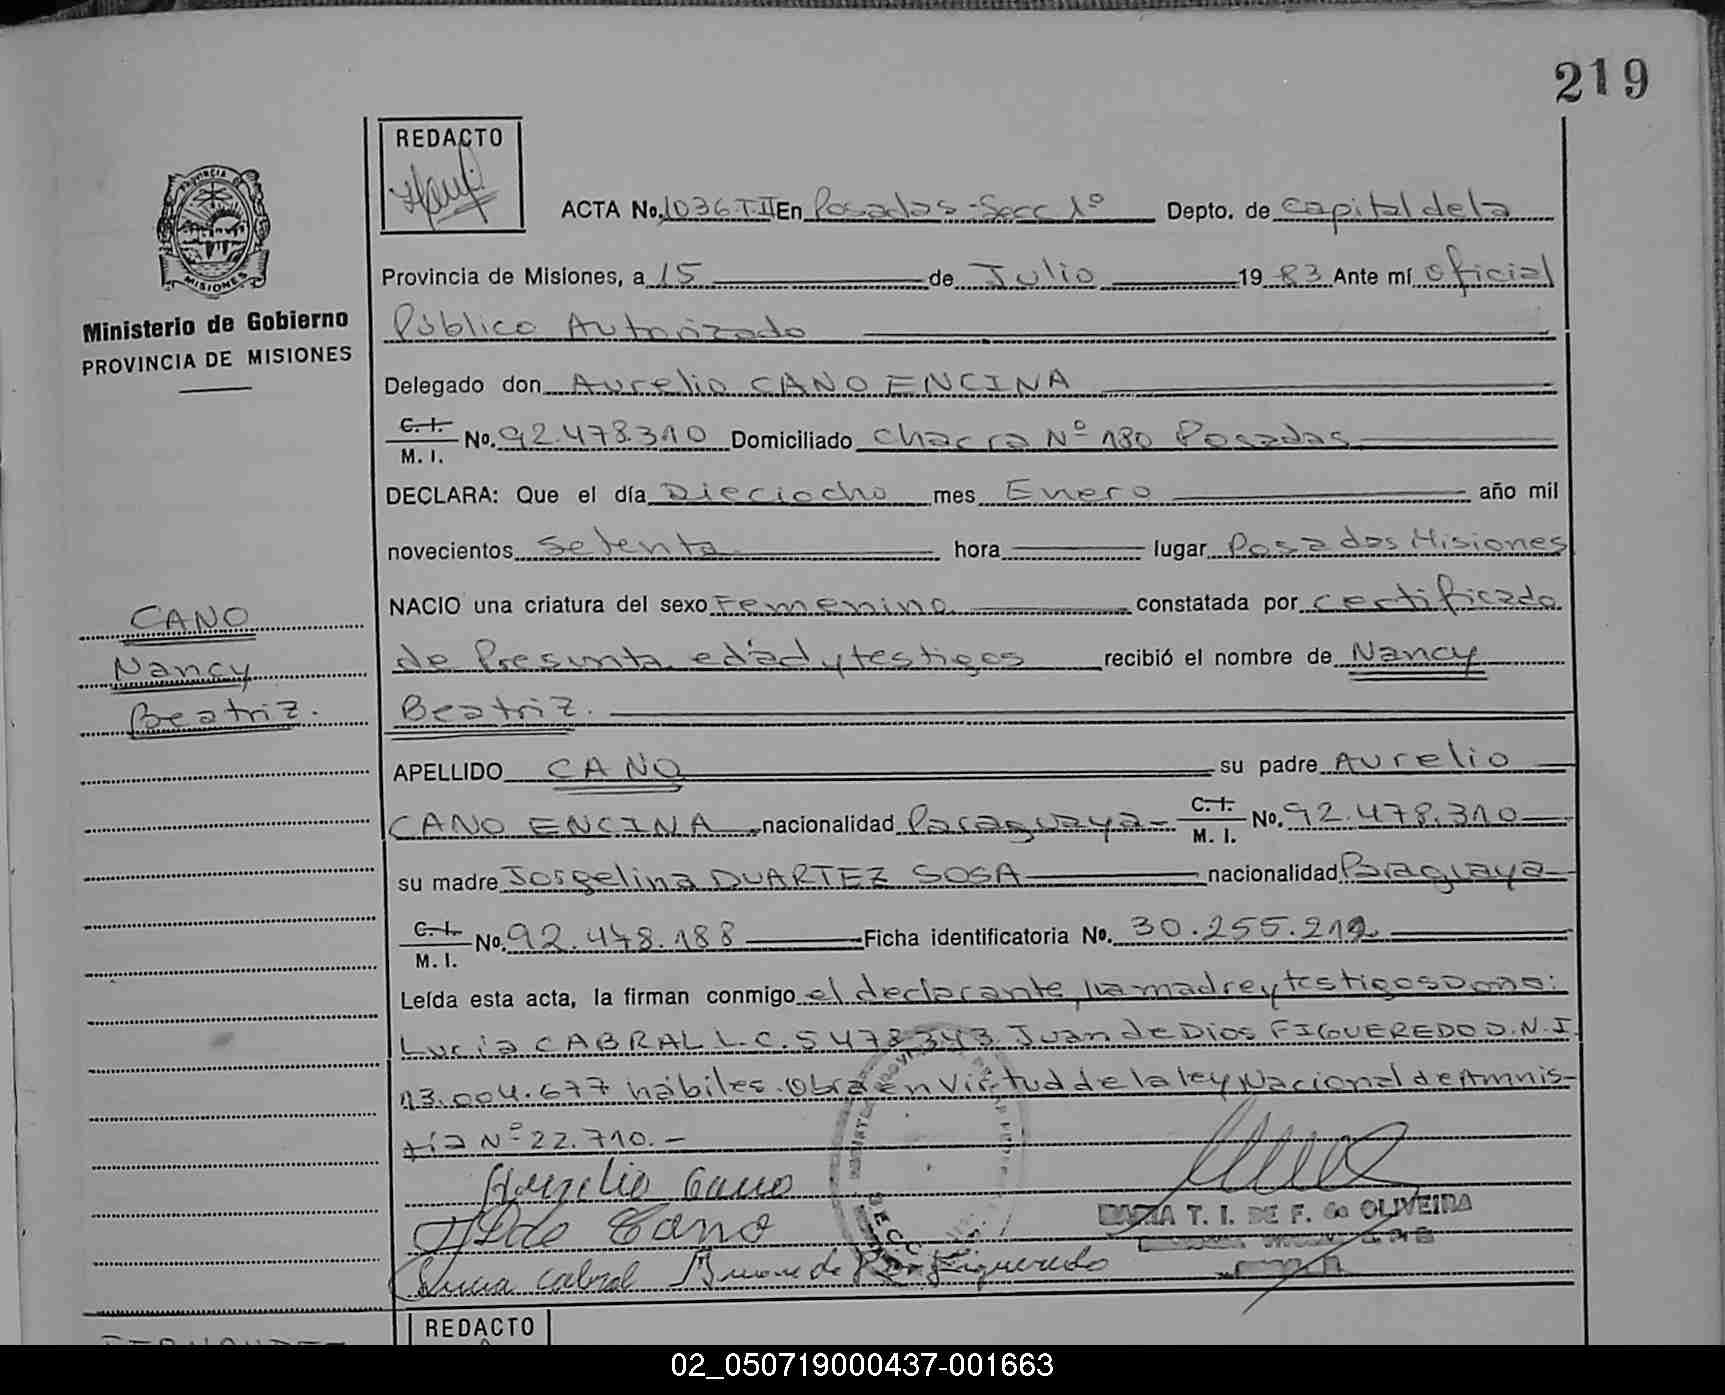 219
REDACTO
PROVINCIA DE
MISIONES
Ministerio de Gobierno
PROVINCIA DE MISIONES
CANO
Nancy
Beatriz.
ACTA No. 1036.T.II En Posadas-Secc 1º Depto. de Capital de la
Provincia de Misiones, a 15 de Julio 19 83 Ante mí Oficial
Público Autorizado
Delegado don Aurelio CANO ENCINA
C. I.
M. I. No. 92.478.310 Domiciliado Chacra Nº 180 Posadas
DECLARA: Que el día Dieciocho mes Enero año mil
novecientos setenta hora lugar Posadas Misiones
NACIO una criatura del sexo Femenino constatada por certificado
de Presunta edad y testigos recibió el nombre de Nancy
Beatriz.
APELLIDO CANO su padre Aurelio
CANO ENCINA nacionalidad Paraguaya- C. I. M. I. No. 92.478.310
su madre Jorgelina DUARTEZ SOSA nacionalidad Paraguaya
C. I.
M. I. No. 92.478.188 Ficha identificatoria No. 30.255.212
Leída esta acta, la firman conmigo el declarante, la madre y testigos Dona:
Lucia CABRAL L.C. 5478343 Juan de Dios FIGUEREDO D.N.I
13.004.677 hábiles. Obra en virtud de la ley Nacional de Amnis-
tía Nº 22.710.-
Aurelio Cano
Cano
MARIA T. I. DE F. de OLIVEIRA
Lucia Cabral Juan de Dios Figueredo
SECC
REDACTO
02_050719000437-001663